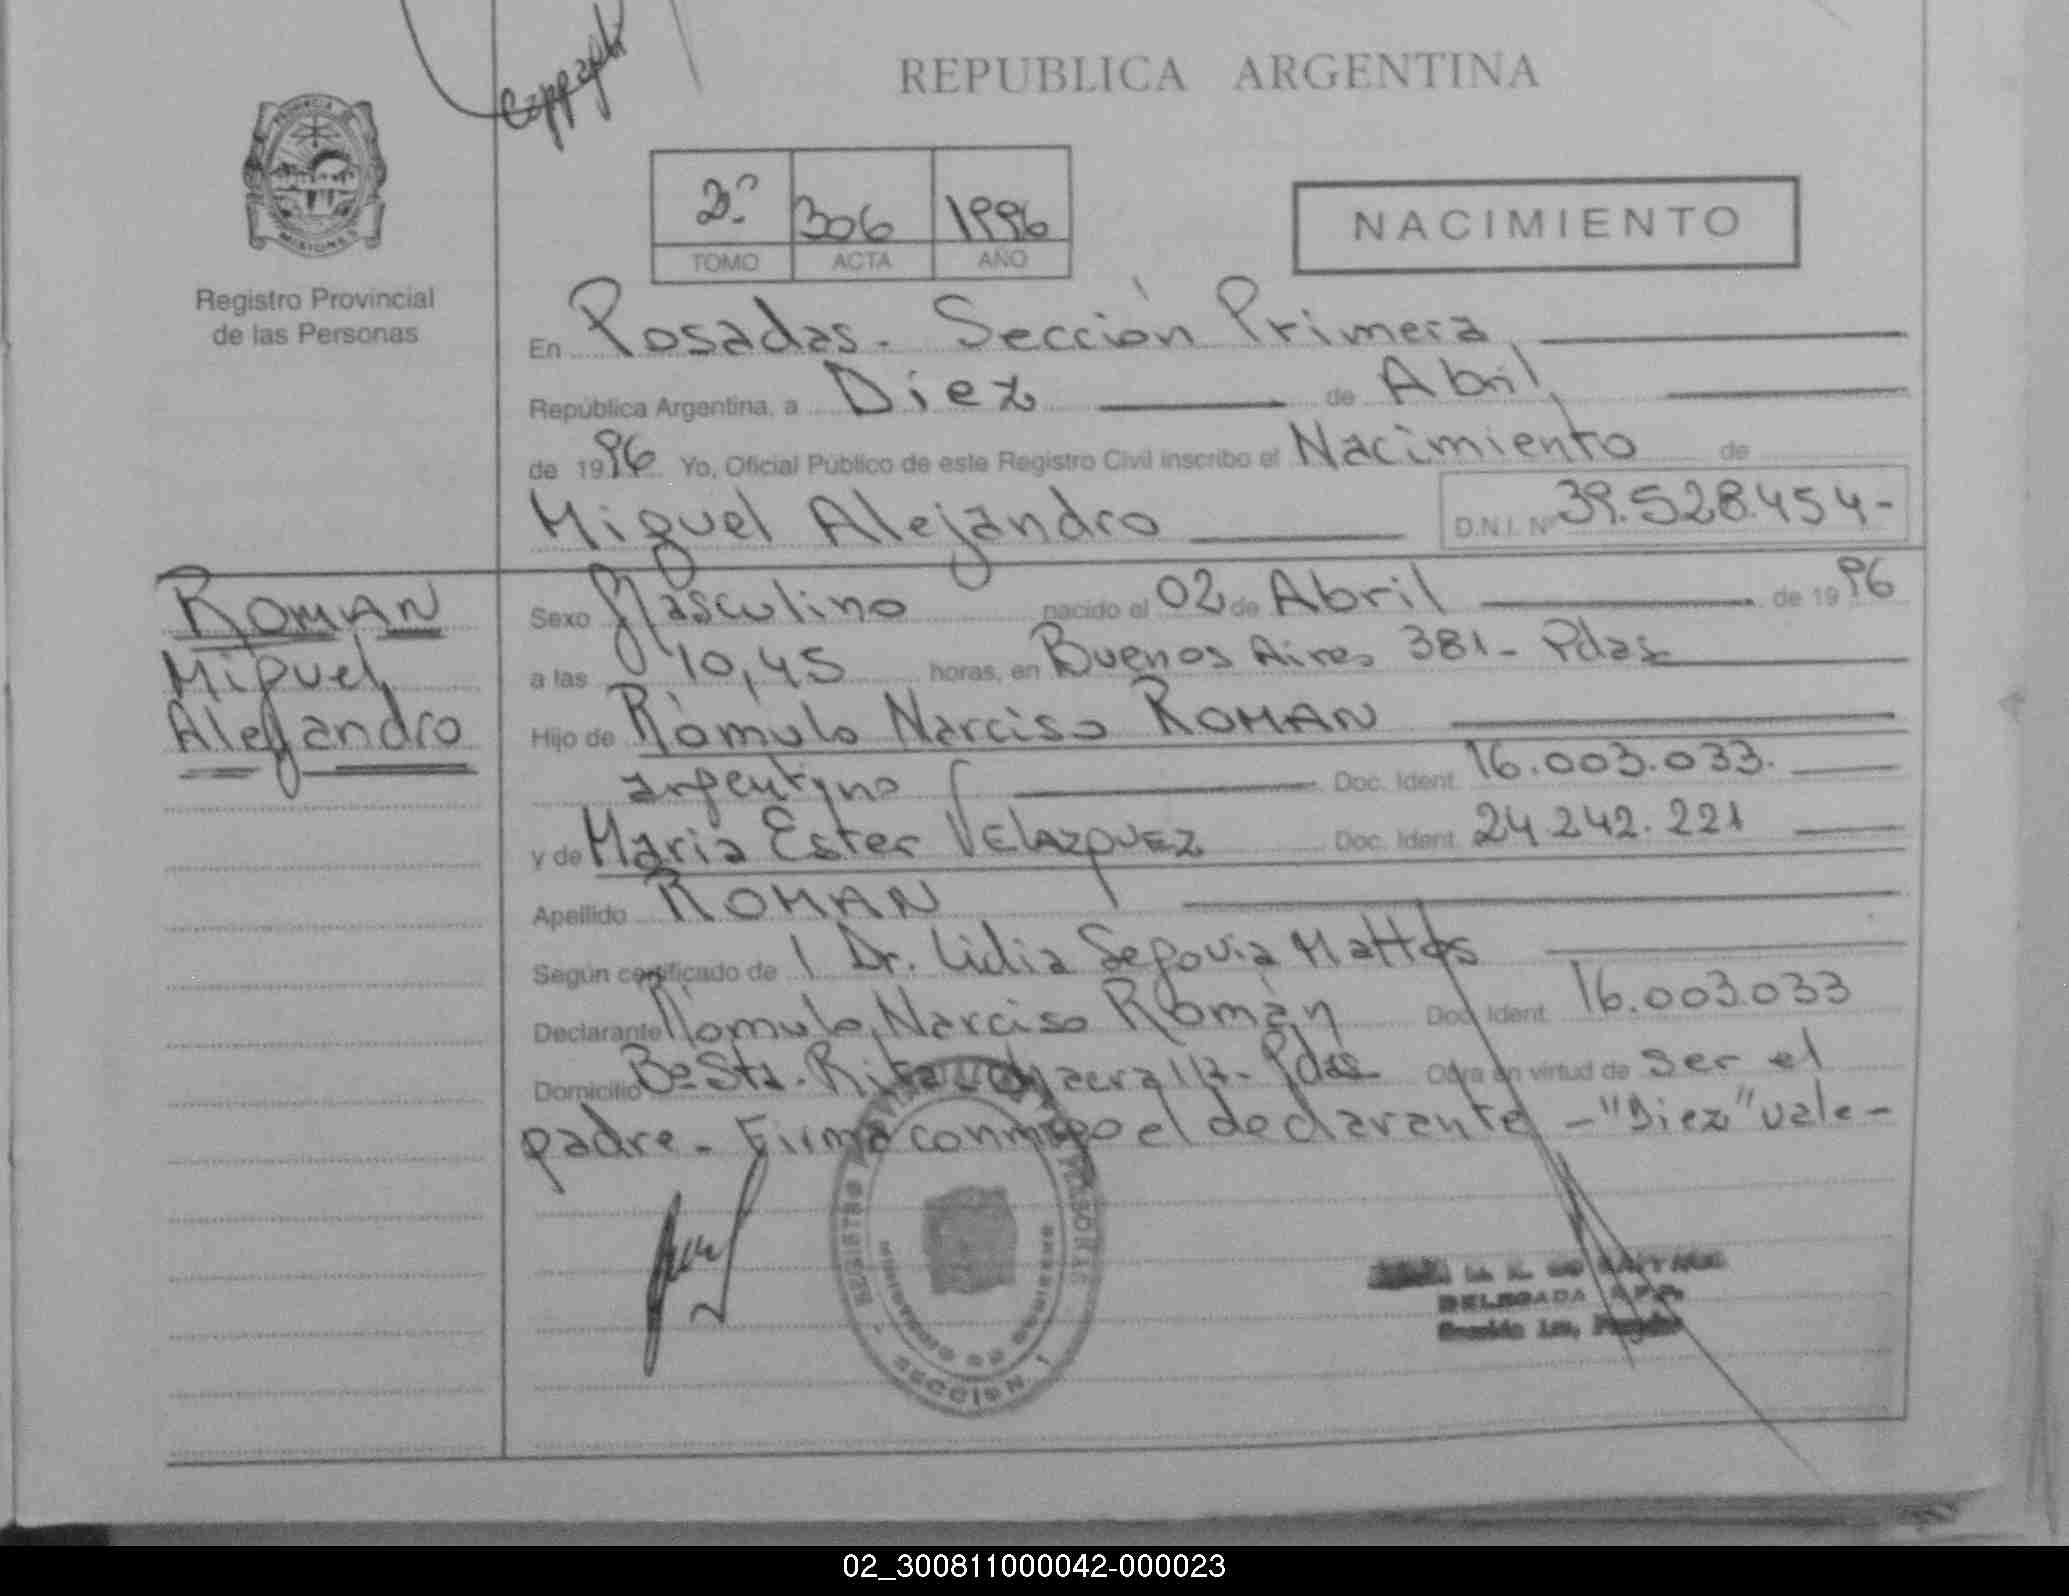 REPUBLICA ARGENTINA
PROVINCIA
MISIONES
Registro Provincial
de las Personas
2º 306 1996
TOMO ACTA AÑO
NACIMIENTO
En Posadas. Sección Primera
República Argentina, a Diez de Abril,
de 1996 Yo, Oficial Público de este Registro Civil inscribo el Nacimiento de
Miguel Alejandro D.N.I. Nº 39.528.454-
ROMAN
Miguel
Alejandro
Sexo Masculino nacido el 02 de Abril de 1996
a las 10,45 horas, en Buenos Aires 381- Pdas
Hijo de Rómulo Narciso ROMAN
argentino Doc. Ident. 16.003.033.
y de Maria Ester VELAZQUEZ Doc. Ident. 24.242.221
Apellido ROMAN
Según certificado de Dr. Lidia Segovia Mattos
Declarante Rómulo Narciso Román Doc. Ident. 16.003.033
Domicilio Bº Sta. Rita Pdas Obra en virtud de ser el
padre. Firma conmigo el declarante -"Diez" vale-
DELEGADA
SECCION 1
02_300811000042-000023